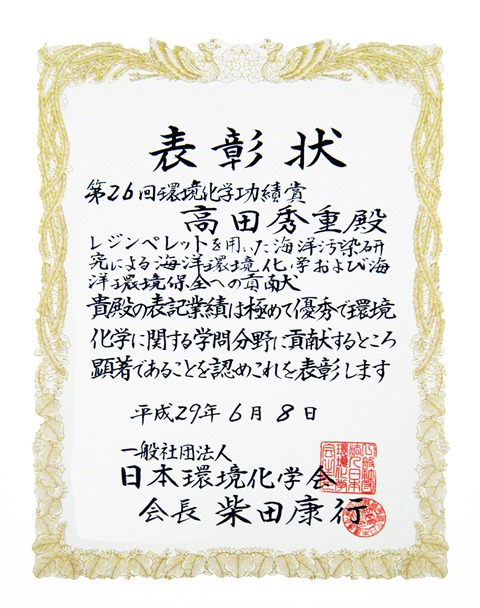 表彰状
第26回環境化学功績賞
高田秀重殿
レジンペレットを用いた海洋汚染研
究による海洋環境化学および海
洋環境保全への貢献
貴殿の表記業績は極めて優秀で環境
化学に関する学問分野に貢献するところ
顕著であることを認めこれを表彰します
平成29年6月8日
一般社団法人
日本環境化学会
会長 柴田康行